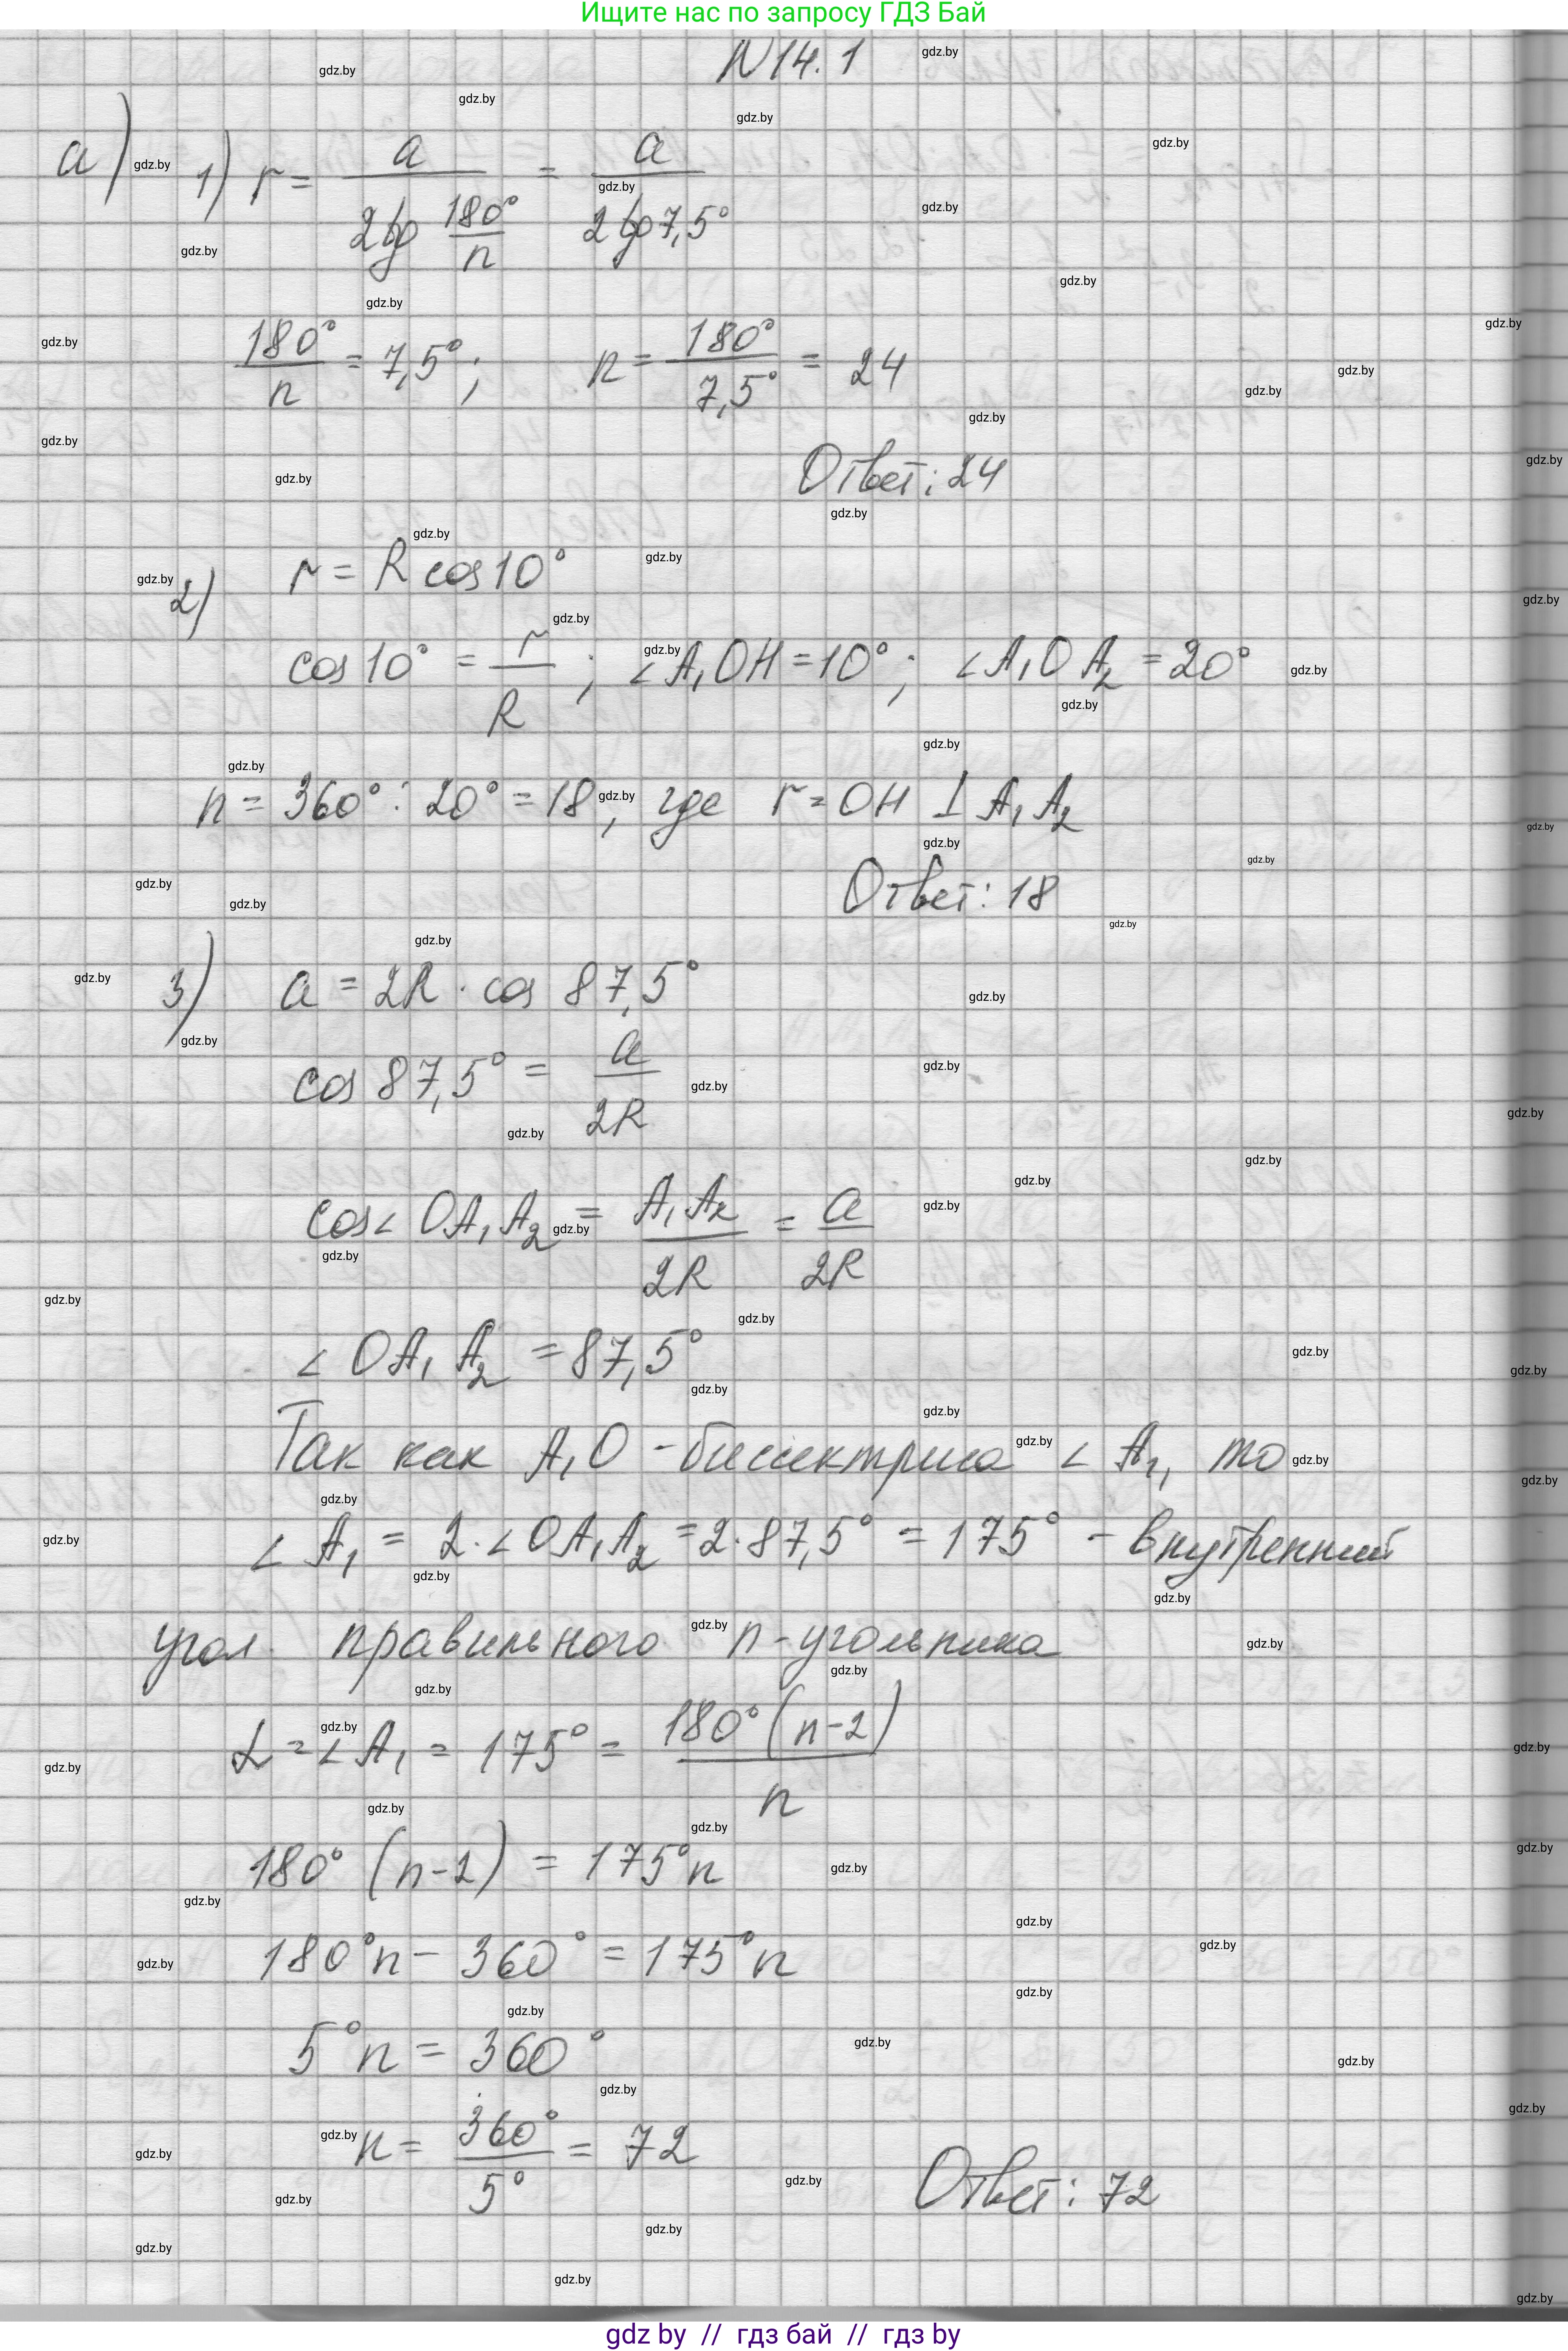 Ищите нас по запросу ГДЗ Бай
N 14. 1
а) 1) r = a / (2tg 180°/n) = a / (2tg 7,5°)
180°/n = 7,5°; n = 180°/7,5° = 24
Ответ: 24
2) r = R cos 10°
cos 10° = r/R; ∠A₁OH = 10°; ∠A₁OA₂ = 20°
n = 360° : 20° = 18, где r = OH ⊥ A₁A₂
Ответ: 18
3) a = 2R · cos 87,5°
cos 87,5° = a/2R
cos∠OA₁A₂ = A₁A₂/2R = a/2R
∠OA₁A₂ = 87,5°
Так как A₁O - биссектриса ∠A₁, то
∠A₁ = 2·∠OA₁A₂ = 2·87,5° = 175° - внутренний
угол правильного n-угольника
α = ∠A₁ = 175° = 180°(n-2)/n
180° (n-2) = 175°n
180°n - 360° = 175°n
5°n = 360°
n = 360°/5° = 72
Ответ: 72
gdz by // гдз бай // гдз by